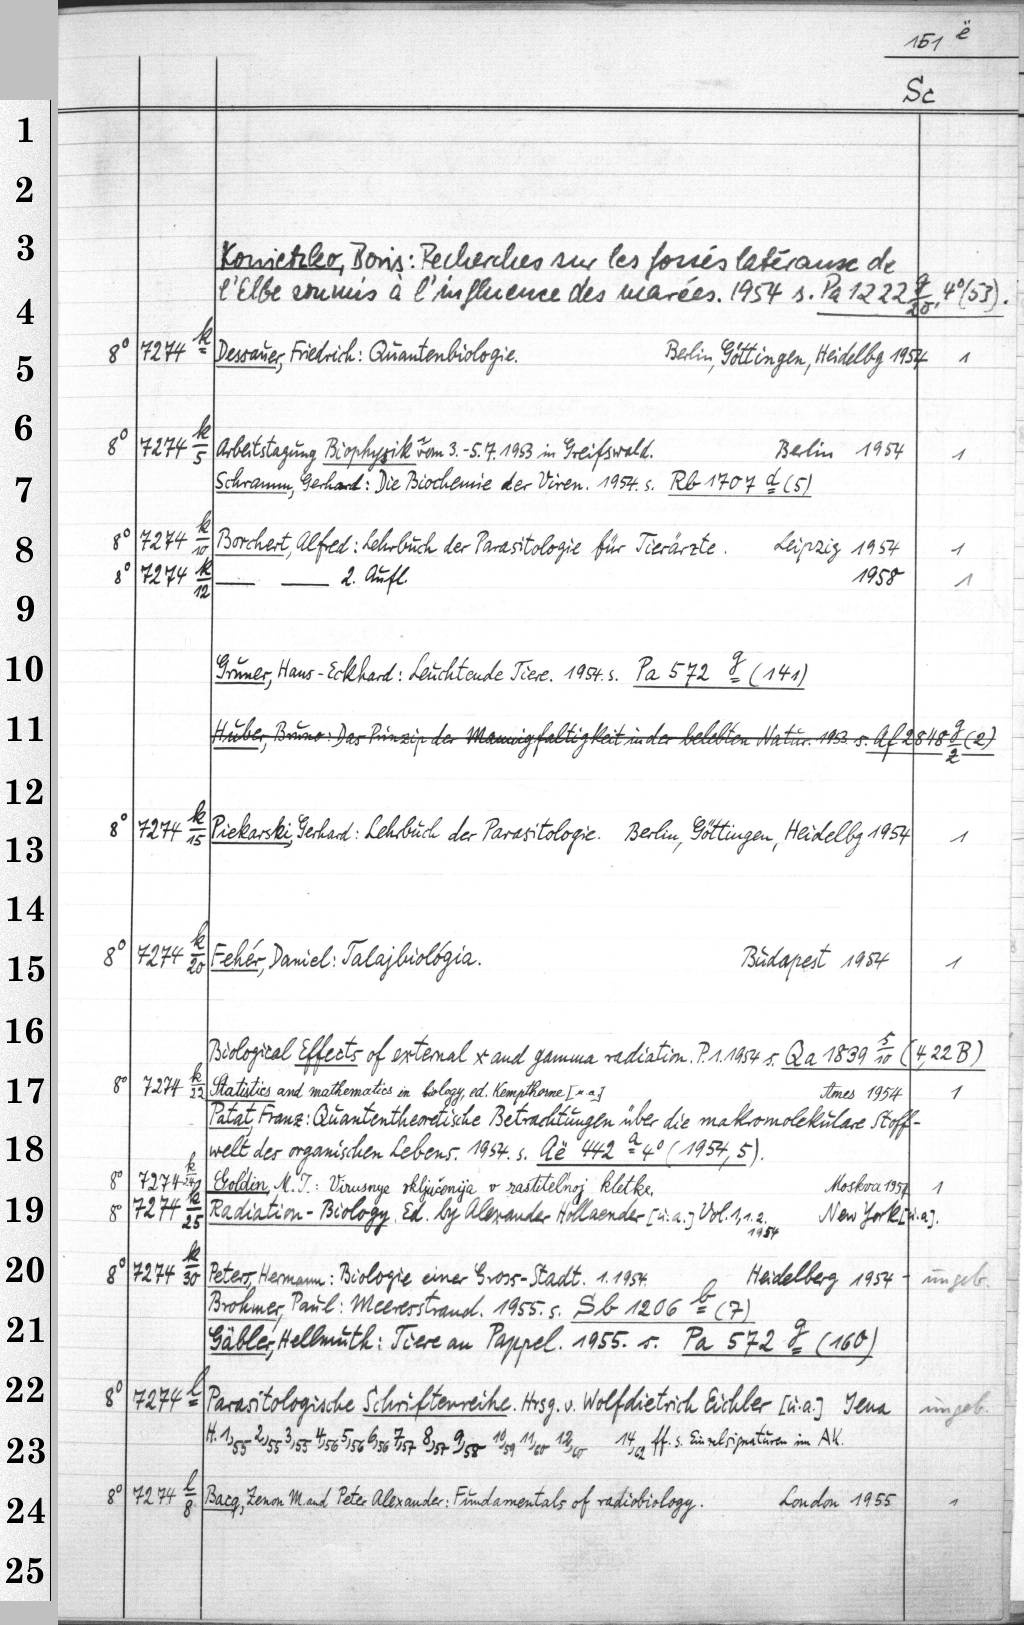 151 ë
Sc
1
2
3
Konietzko, Boris: Recherches sur les fossés latéraux de
l'Elbe soumis à l'influence des marées. 1954 s. Pa 1222 g/20, 4° (53).
4
8° 7274 k Dessauer, Friedrich: Quantenbiologie. Berlin, Göttingen, Heidelbg 1954 1
5
6
8° 7274 k/5 Arbeitstagung Biophysik vom 3.-5.7.1953 in Greifswald. Berlin 1954 1
7 Schramm, Gerhard: Die Biochemie der Viren. 1954. s. Rb 1707 d (5)
8 8° 7274 k/10 Borchert, Alfred: Lehrbuch der Parasitologie für Tierärzte. Leipzig 1954 1
8° 7274 k/12 — — 2. Aufl. 1958 1
9
10 Gruner, Hans-Eckhard: Leuchtende Tiere. 1954. s. Pa 572 g (141)
11 Huber, Bruno: Das Prinzip der Mannigfaltigkeit in der belebten Natur. 1953. s. Af 2848 g/2 (2)
12
8° 7274 k/15 Piekarski, Gerhard: Lehrbuch der Parasitologie. Berlin, Göttingen, Heidelbg 1954 1
13
14
15 8° 7274 k/20 Fehér, Daniel: Talajbiológia. Budapest 1954 1
16
Biological Effects of external x and gamma radiation. P. 1. 1954 s. Qa 1839 s/10 (4,22 B)
17 8° 7274 k/22 Statistics and mathematics in biology, ed. Kempthorne [u.a.] Ames 1954 1
Patat, Franz: Quantentheoretische Betrachtungen über die makromolekulare Stoff-
18 welt des organischen Lebens. 1954. s. Aë 442 a 4° (1954,5).
8° 7274 k/24 Goldin, M. I.: Virusnye vključenija v rastitel'noj kletke. Moskva 1954 1
19 8° 7274 k/25 Radiation-Biology. Ed. by Alexander Hollaender [u.a.] Vol. 1, 1.2. 1954 New York [u.a].
20 8° 7274 k/30 Peters, Hermann: Biologie einer Gross-Stadt. 1. 1954. Heidelberg 1954 - ungeb.
Brohmer, Paul: Meeresstrand. 1955. s. Sb 1206 b (7)
21 Gäbler, Hellmuth: Tiere an Pappel. 1955. s. Pa 572 g (160)
22 8° 7274 l Parasitologische Schriftenreihe. Hrsg. v. Wolfdietrich Eichler [u.a.] Jena ungeb.
23 H. 1,55 2,55 3,55 4,56 5,56 6,56 7,57 8,57 9,58 10,59 11,60 12,60 14,62 ff. s. Einzelsignaturen im AK.
24 8° 7274 l/8 Bacq, Zenon M. and Peter Alexander: Fundamentals of radiobiology. London 1955 1
25